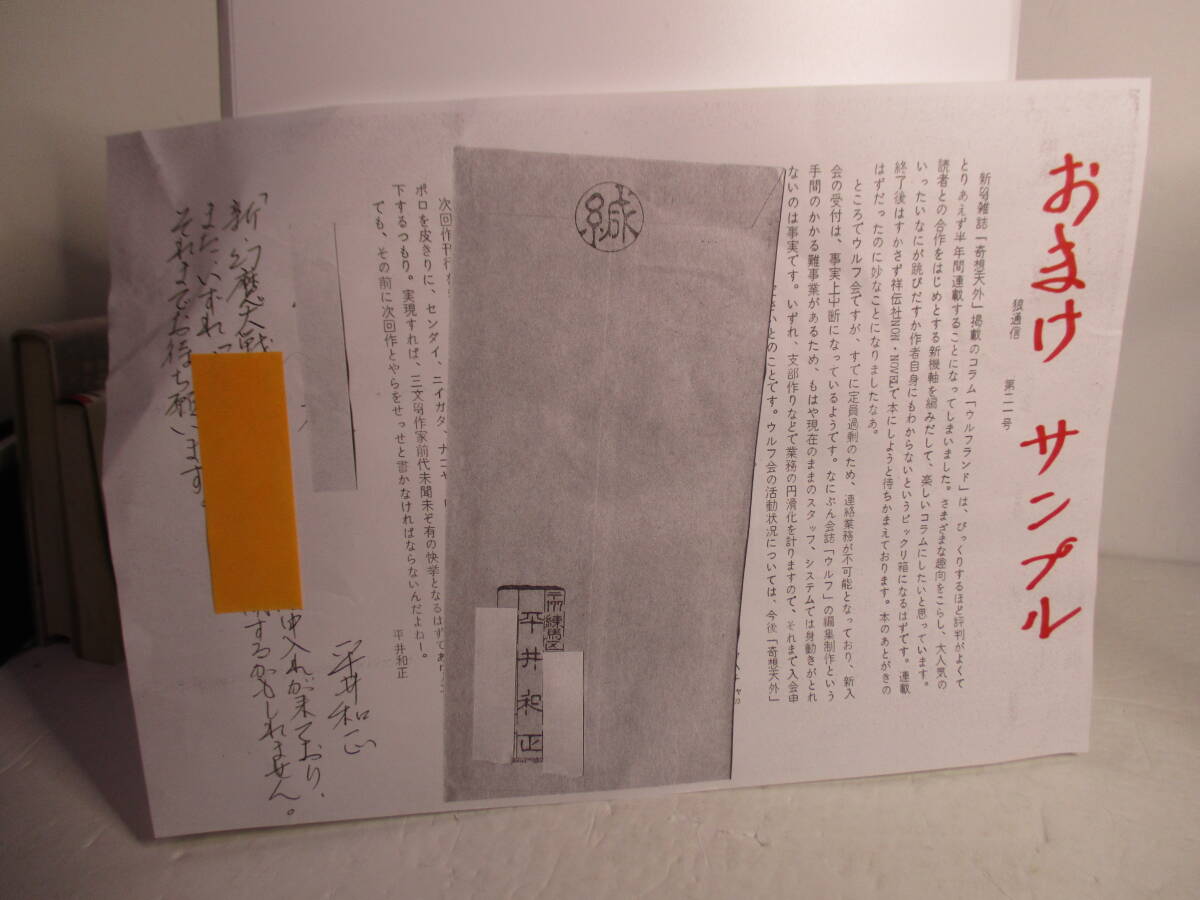 おまけ サンプル
狼通信 第二一号
新鋭雑誌「奇想天外」掲載のコラム「ウルフランド」は、びっくりするほど評判がよくて
とりあえず半年間連載することになってしまいました。さまざまな趣向をこらし、大人気の
読者との合作をはじめとする新機軸を編みだして、楽しいコラムにしたいと思っています。
いったいなにが跳びだすか作者自身にもわからないというビックリ箱になるはずです。連載
終了後はすかさず祥伝社NON・NOVELで本にしようと待ちかまえております。本のあとがきの
はずだったのに妙なことになりましたなあ。
ところでウルフ会ですが、すでに定員過剰のため、連絡業務が不可能となっており、新入
会の受付は、事実上中断になっているようです。なにぶん会誌「ウルフ」の編集制作という
手間のかかる難事業があるため、もはや現在のままのスタッフ、システムでは身動きがとれ
ないのは事実です。いずれ、支部作りなどで業務の円滑化を計りますので、それまで入会申
さいとのことです。ウルフ会の活動状況については、今後「奇想天外」
緘
練馬区
平井和正
次回作刊行
ポロを皮きりに、センダイ、ニイガタ、ナゴヤ
下するつもり。実現すれば、三文作家前代未聞未ぞ有の快挙となるはずであり
ても、その前に次回作とやらをせっせと書かなければならないんだよねー。
平井和正
「新幻魔大戦
またいずれ
それまでお待ち願います。
申入れが来ており、
するかもしれません。
平井和正